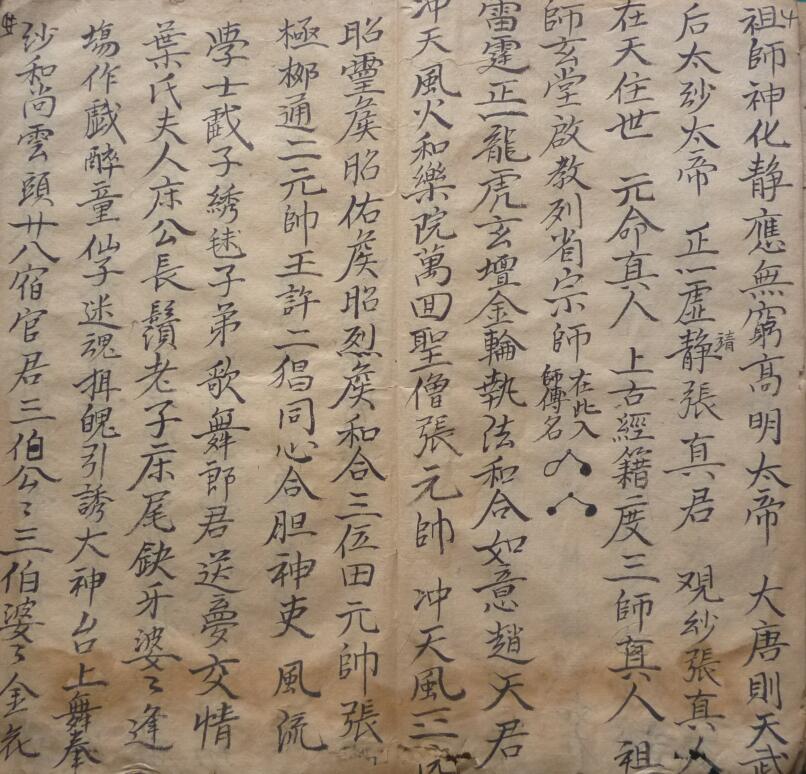 祖師神化静應無窮高明太帝 大唐則天武
后太玅太帝 正一虛静張真君 观玅張真人
靖
在天住世 元命真人 上古經籍二度三師真人 祖
師玄堂啟教列省宗師 在此入
師傅名
雷霆正一龍虎玄壇金輪執法和合如意趙天君
冲天風火和樂院萬回聖僧張元帥 冲天風三
昭靈侯昭佑侯昭烈侯和合三位田元帥張
極郷通二元帥王許二猖同心合胆神吏 風流
學士戲子綉毬子弟歌舞郎君送夢交情
葉氏夫人床公長鬚老子床尾缺牙婆〻逢
塲作戯醉童仙子迷魂揖魄引誘大神台上舞奉
玅和尚雲頭廿八宿官君三伯公〻三伯婆〻金花